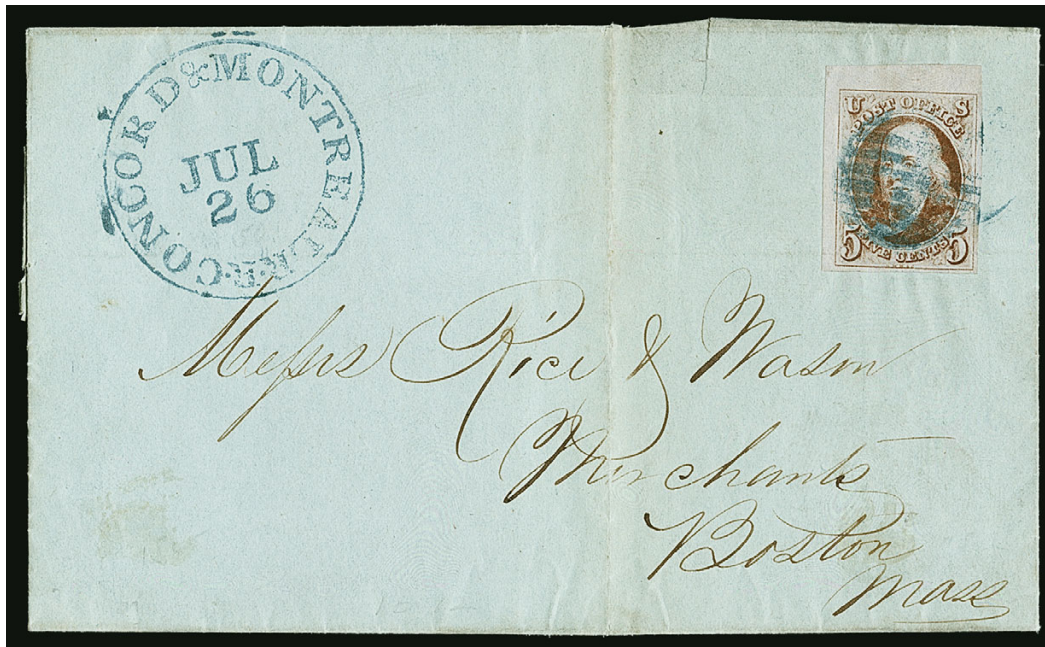 CONCORD & MONTREAL R.R.
JUL
26
U S
POST OFFICE
5 FIVE CENTS 5
Messrs Rice & Wason
Merchants
Boston
Mass